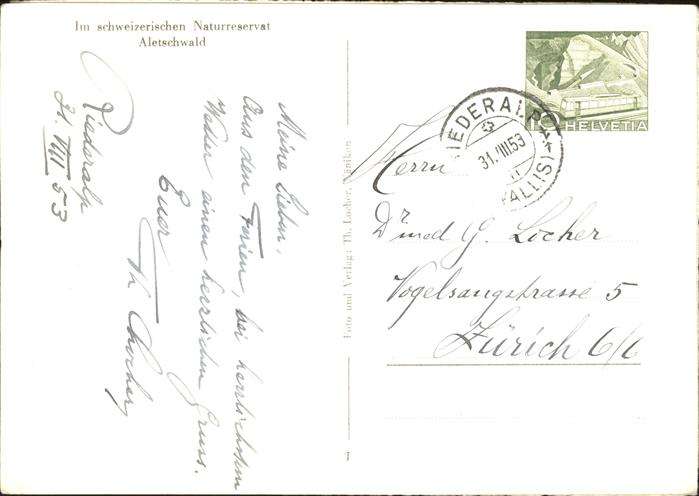 Im schweizerischen Naturreservat
Aletschwald
Riederalp
31. VIII 53
Meine Lieben,
Aus den Ferien, bei herrlichstem
Wetter einen herzlichen Gruss.
Euer
Th. Locher
Foto und Verlag: Th. Locher,
HELVETIA
RIEDERALP
31.VIII.53
(WALLIS)
Herrn
Dr med G. Locher
Vogelsangstrasse 5
Zürich 6/6
1